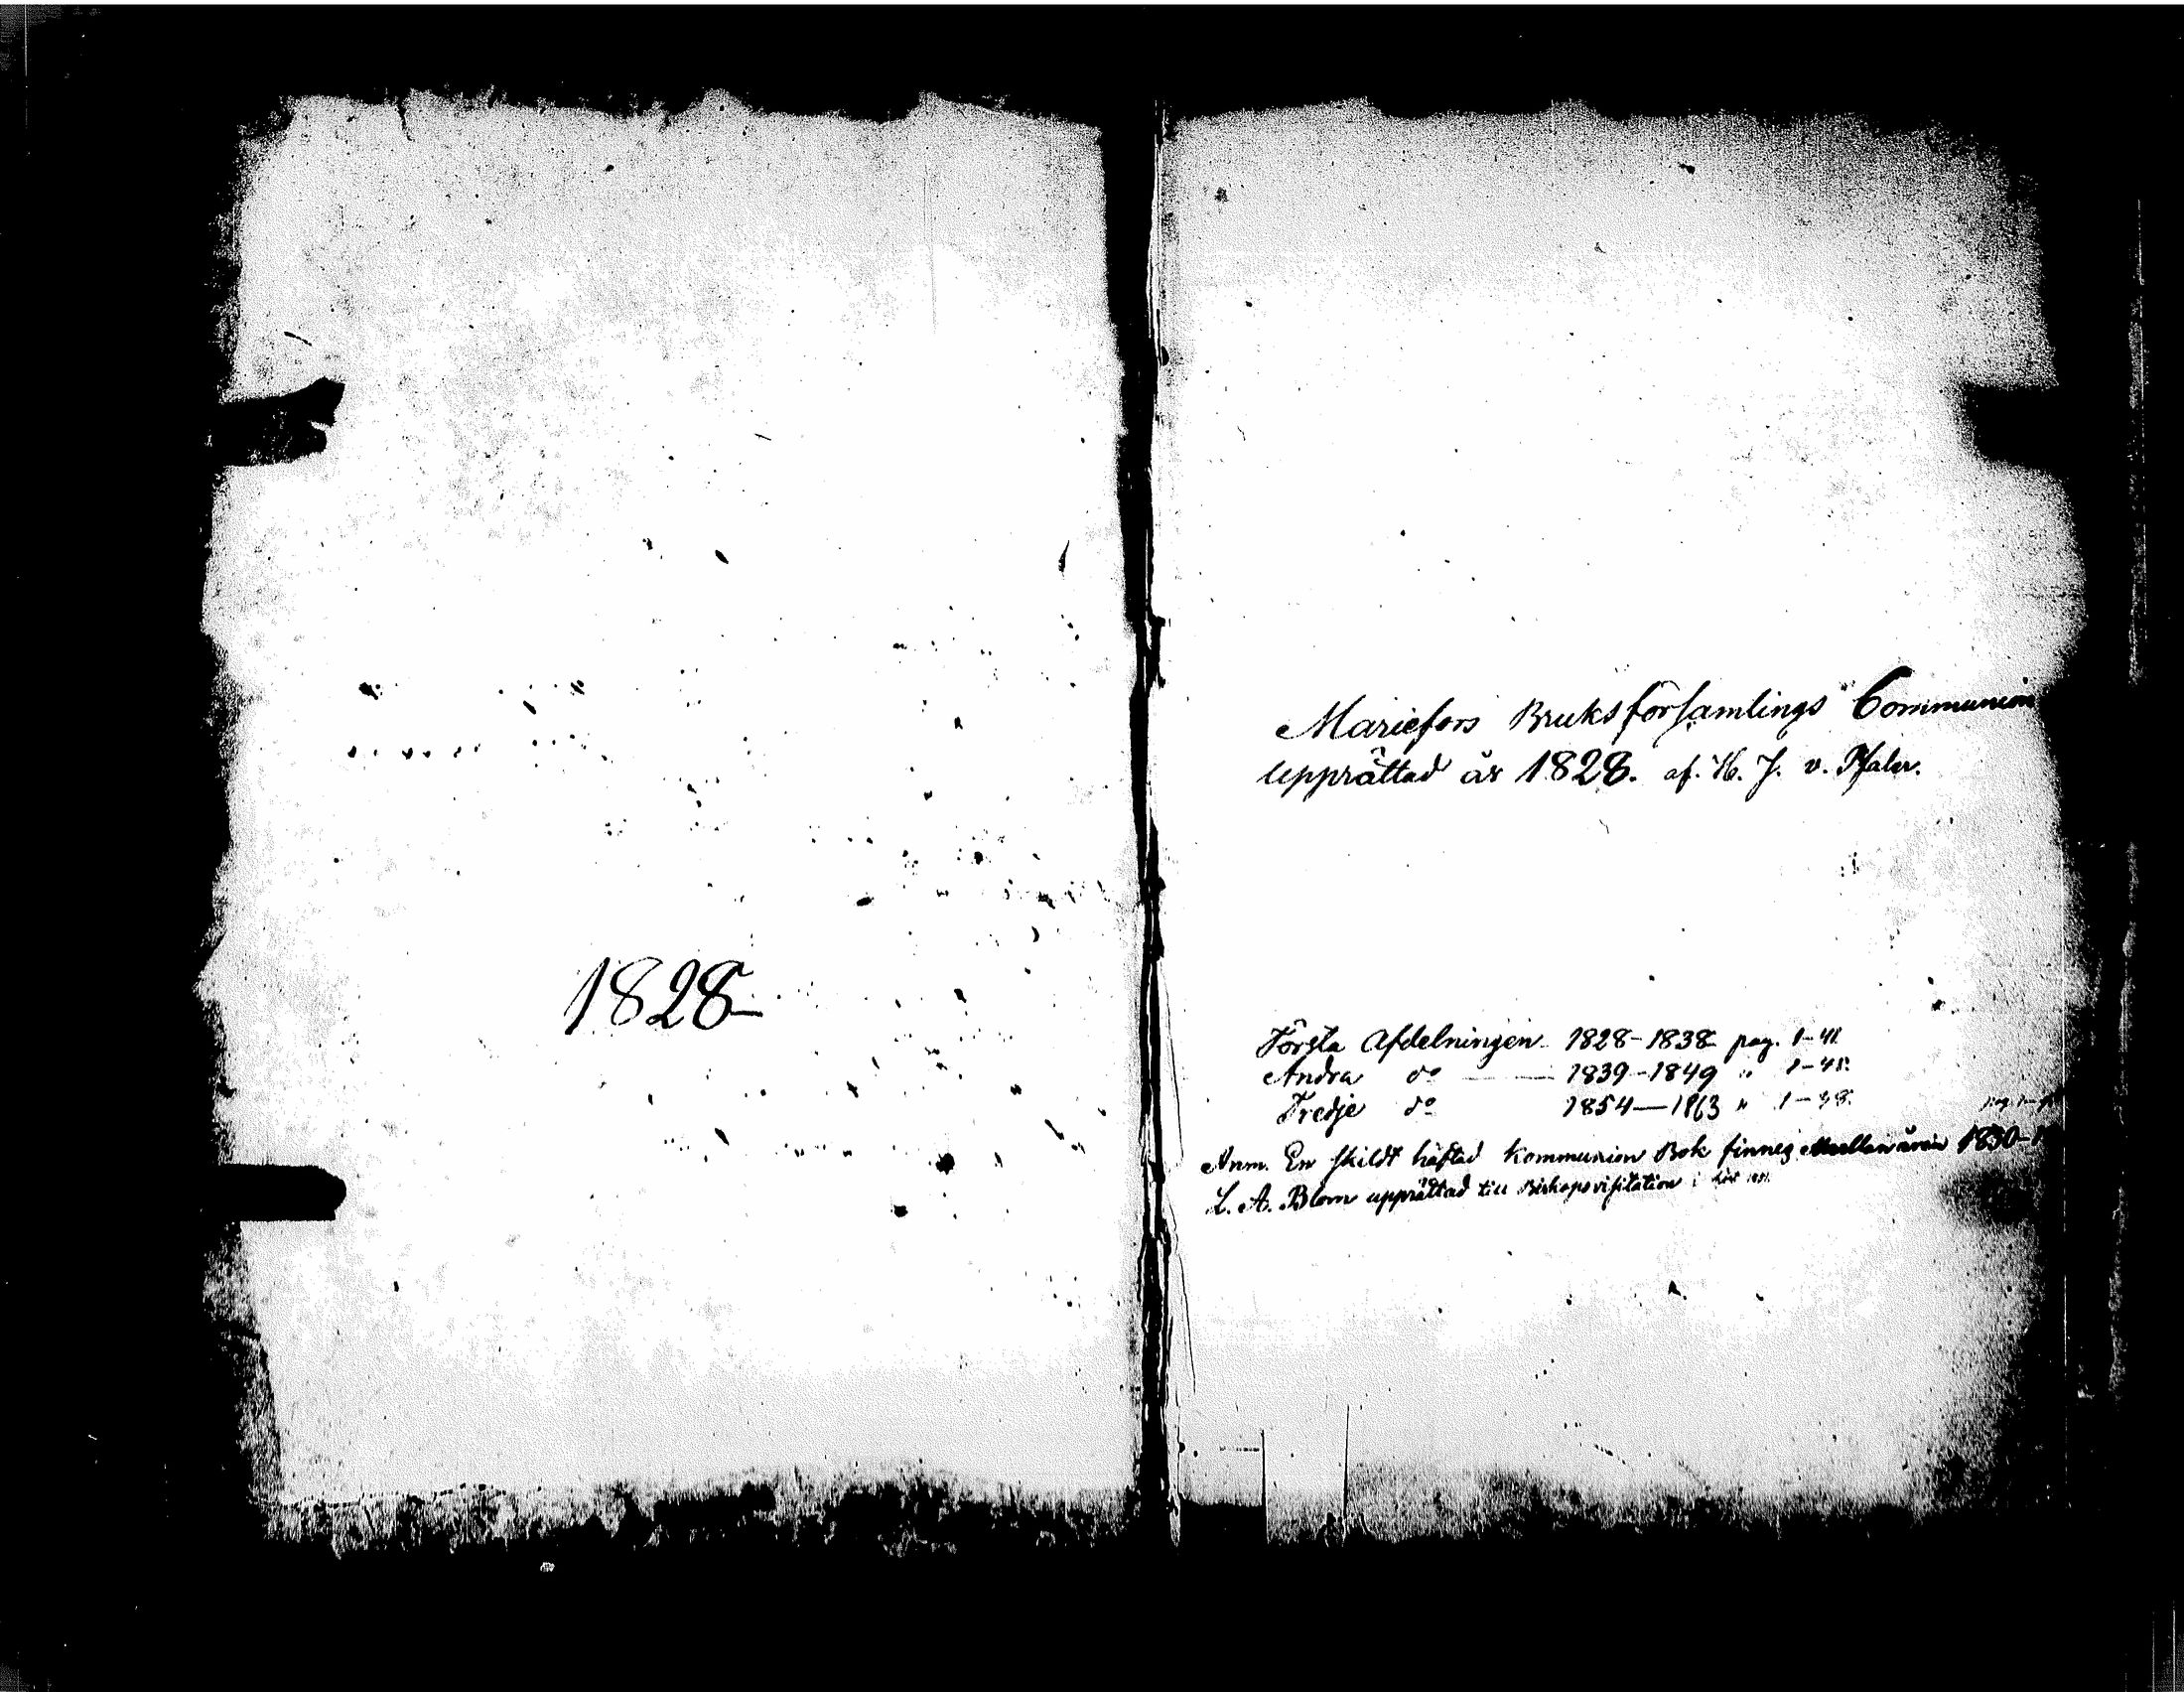 1828
Mariefors Bruksförsamlings Communion
upprättad år 1828. af. K. J. v. Pfaler.
Första Afdelningen 1828-1838 pag. 1-41
Andra do 1839-1849 " 1-45.
Tredje do 1854-1863 " 1-38.
Anm. En skildt häftad Kommunion Bok finnes mellan åren 1850-1
L. A. Blom upprättad till Biskopsvisitation i